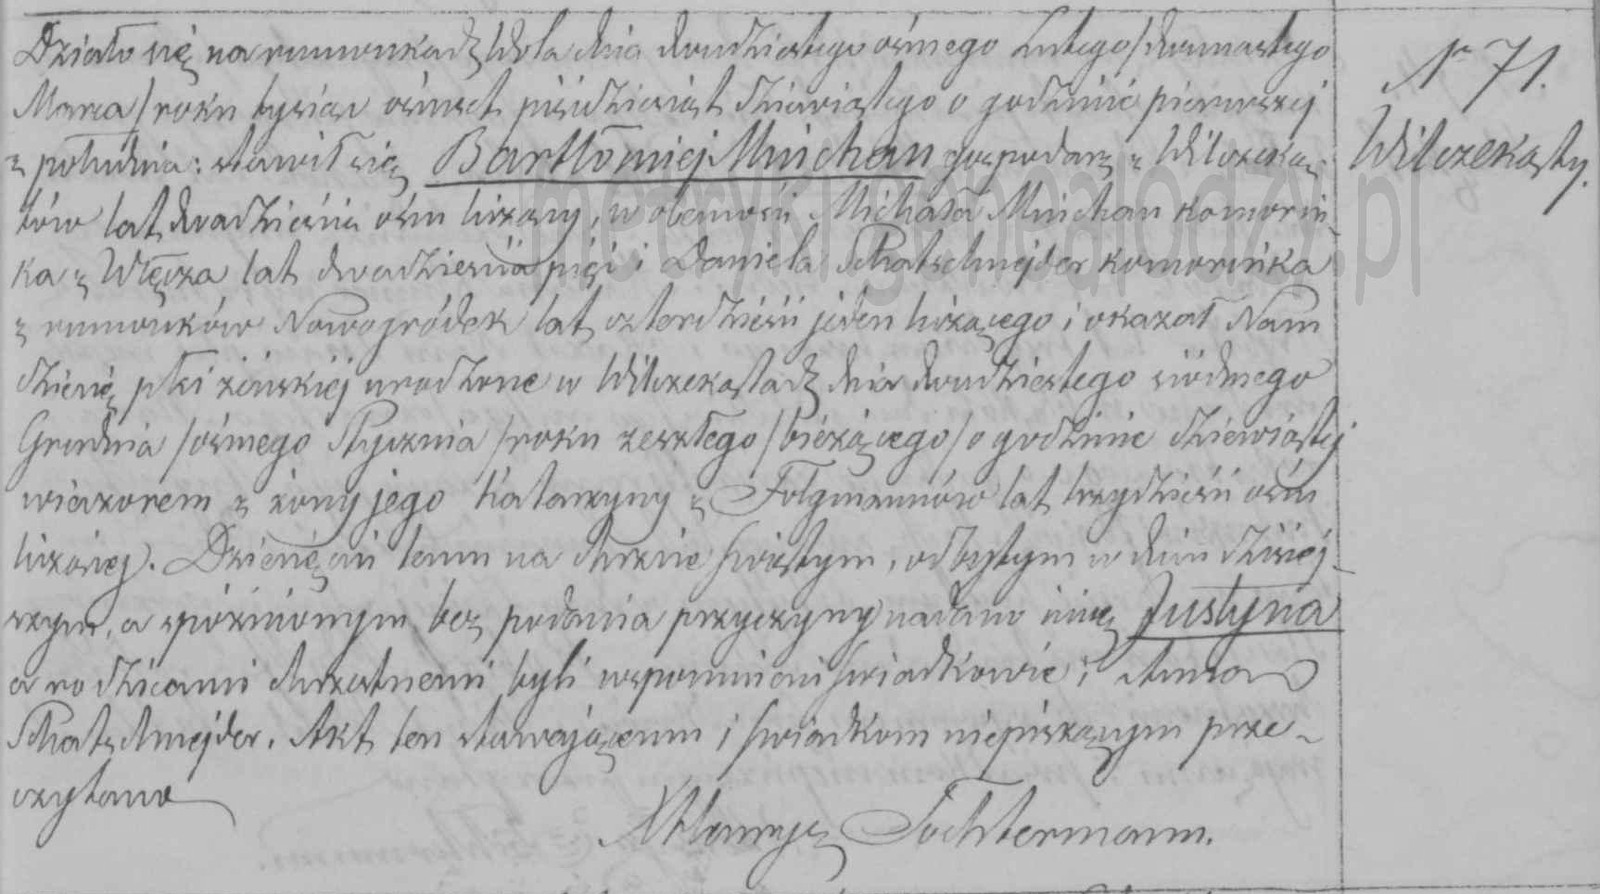 Działo się na rumunkach Wola dnia dwudziestego ósmego Lutego /dwunastego
Marca/ roku tysiąc ośmset pięćdziesiąt dziewiątego o godzinie pierwszej
z południa: stawił się Bartłomiej Mnichan gospodarz z Wilczeką-
tów lat dwadzieścia ośm liczący, w obecności Michała Mnichan komorni-
ka z Więcza lat dwadzieścia pięć i Daniela Schatschnejder komornika
z rumunków Nowogródek lat czterdzieści jeden liczącego i okazał Nam
dziecię płci żeńskiej urodzone w Wilczekątach dnia dwudziestego siódmego
Grudnia /ósmego Stycznia/ roku zeszłego /bieżącego/ o godzinie dziewiątej
wieczorem z żony jego Katarzyny z Folgmannów lat trzydzieści ośm
liczącej. Dziecięciu temu na chrzcie świętym, odbytym w dniu dzisiej-
szym, a spóźnionym bez podania przyczyny nadano imię Justyna
a rodzicami chrzestnemi byli wspomnieni świadkowie i Anna
Schatschnejder. Akt ten stawającemu i świadkom niepiszącym prze-
czytano
X Tochtermann.
N 71.
Wilczekąty.
metryki.genealodzy.pl